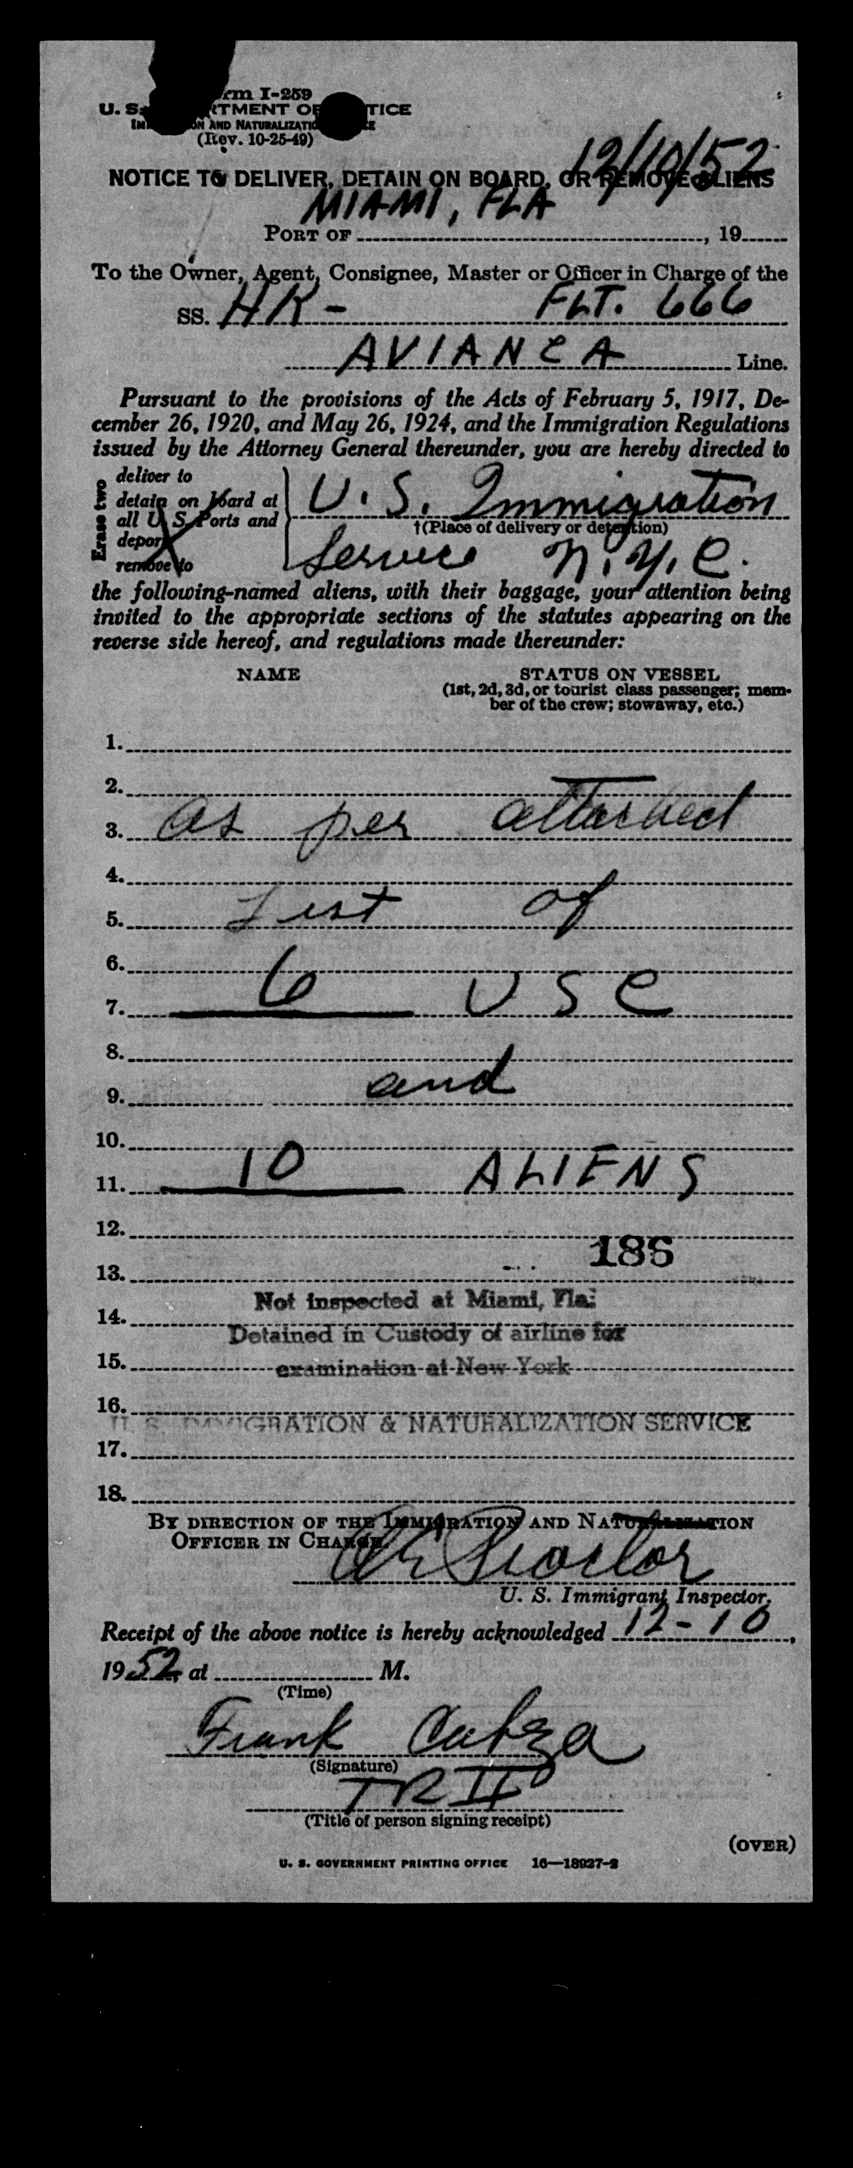 Form I-259
U. S. DEPARTMENT OF JUSTICE
IMMIGRATION AND NATURALIZATION SERVICE
(Rev. 10-25-49)
12/10/52
NOTICE TO DELIVER, DETAIN ON BOARD, OR REMOVE ALIENS
MIAMI, FLA
PORT OF , 19
To the Owner, Agent, Consignee, Master or Officer in Charge of the
SS. HK- FLT. 666
AVIANCA Line.
Pursuant to the provisions of the Acts of February 5, 1917, De-
cember 26, 1920, and May 26, 1924, and the Immigration Regulations
issued by the Attorney General thereunder, you are hereby directed to
Erase two
deliver to
detain on board at
all U. S. Ports and
deport
remove to
U.S. Immigration
†(Place of delivery or detention)
Service N.Y.C.
the following-named aliens, with their baggage, your attention being
invited to the appropriate sections of the statutes appearing on the
reverse side hereof, and regulations made thereunder:
NAME STATUS ON VESSEL
(1st, 2d, 3d, or tourist class passenger; mem-
ber of the crew; stowaway, etc.)
1.
2.
3. as per attached
4.
5. List of
6.
7. 6 USC
8.
9. and
10.
11. 10 ALIENS
12.
186
13.
Not inspected at Miami, Fla:
14.
Detained in Custody of airline for
15. examination at New York
16.
U. S. IMMIGRATION & NATURALIZATION SERVICE
17.
18.
BY DIRECTION OF THE IMMIGRATION AND NATURALIZATION
OFFICER IN CHARGE
Proctor
U. S. Immigrant Inspector.
Receipt of the above notice is hereby acknowledged 12-10,
1952, at M.
(Time)
Frank
(Signature)
TR II
(Title of person signing receipt)
(OVER)
U. S. GOVERNMENT PRINTING OFFICE 16—18927-2